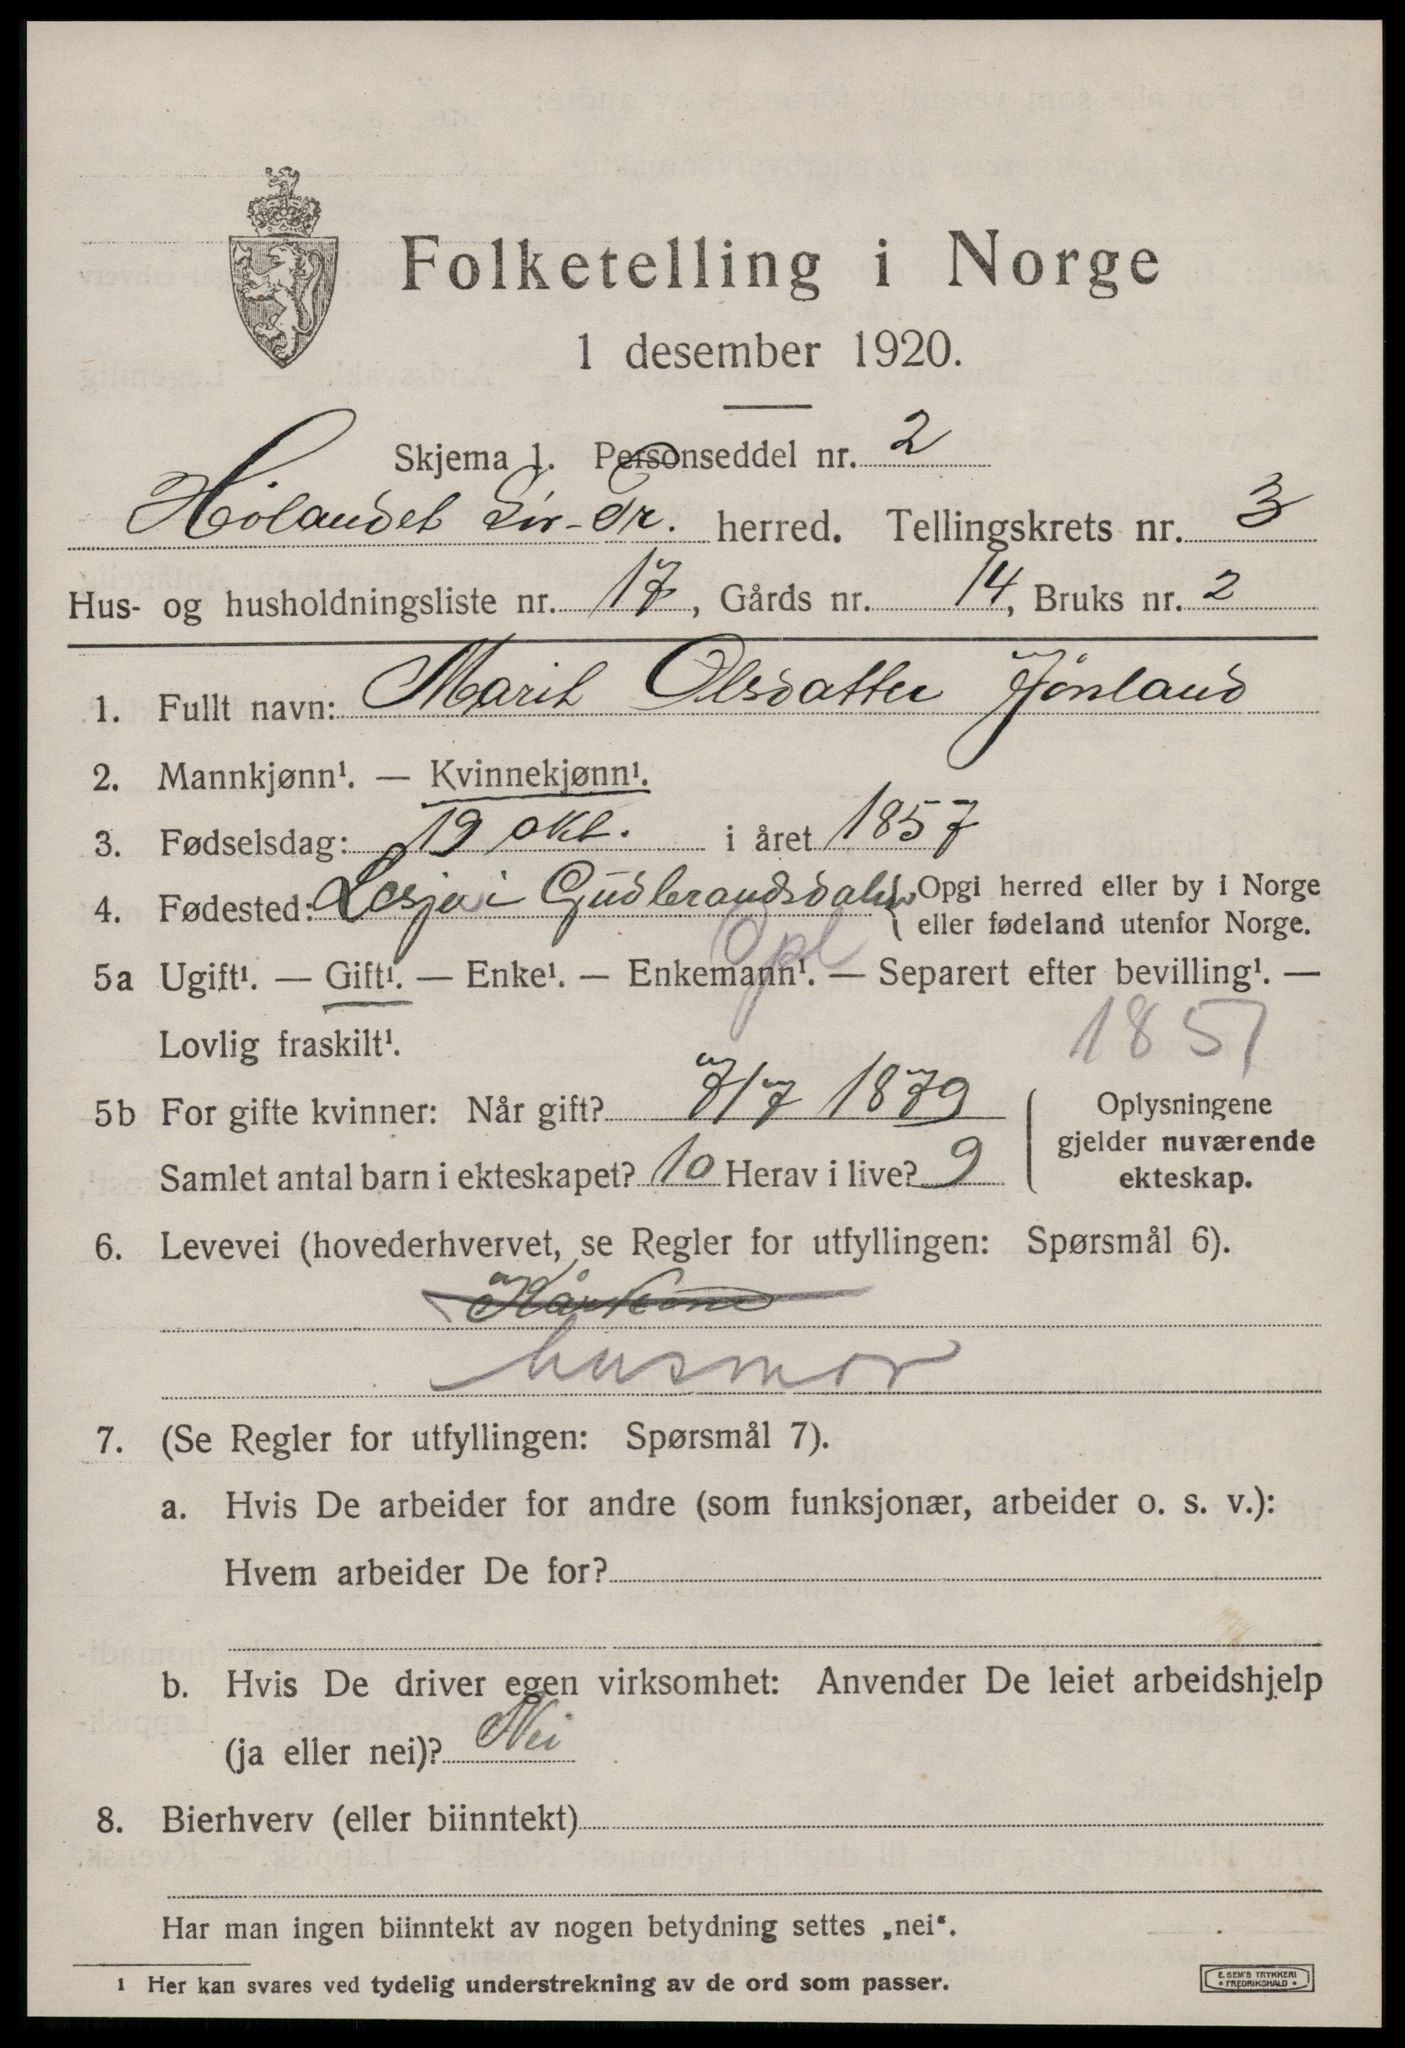 Folketelling i Norge
1 desember 1920.
Skjema 1. Personseddel nr. 2
Hølandet Sør-Tr. herred. Tellingskrets nr. 3
Hus- og husholdningsliste nr. 17, Gårds nr. 14, Bruks nr. 2
1. Fullt navn: Marit Olsdatter Jønland
2. Mannkjønn¹. — Kvinnekjønn¹.
3. Fødselsdag: 19 okt. i året 1857
4. Fødested: Lesja i Gudbrandsdalen Opgi herred eller by i Norge
eller fødeland utenfor Norge.
Opl
5a Ugift¹. — Gift¹. — Enke¹. — Enkemann¹. — Separert efter bevilling¹. —
Lovlig fraskilt¹.
1851
5b For gifte kvinner: Når gift? 7/7 1879
Samlet antal barn i ekteskapet? 10 Herav i live? 9
Oplysningene
gjelder nuværende
ekteskap.
6. Levevei (hovederhvervet, se Regler for utfyllingen: Spørsmål 6).
husmor
7. (Se Regler for utfyllingen: Spørsmål 7).
a. Hvis De arbeider for andre (som funksjonær, arbeider o. s. v.):
Hvem arbeider De for?
b. Hvis De driver egen virksomhet: Anvender De leiet arbeidshjelp
(ja eller nei)? Nei
8. Bierhverv (eller biinntekt)
Har man ingen biinntekt av nogen betydning settes „nei“.
¹ Her kan svares ved tydelig understrekning av de ord som passer.
E. SEM'S TRYKKERI
• FREDRIKSHALD •